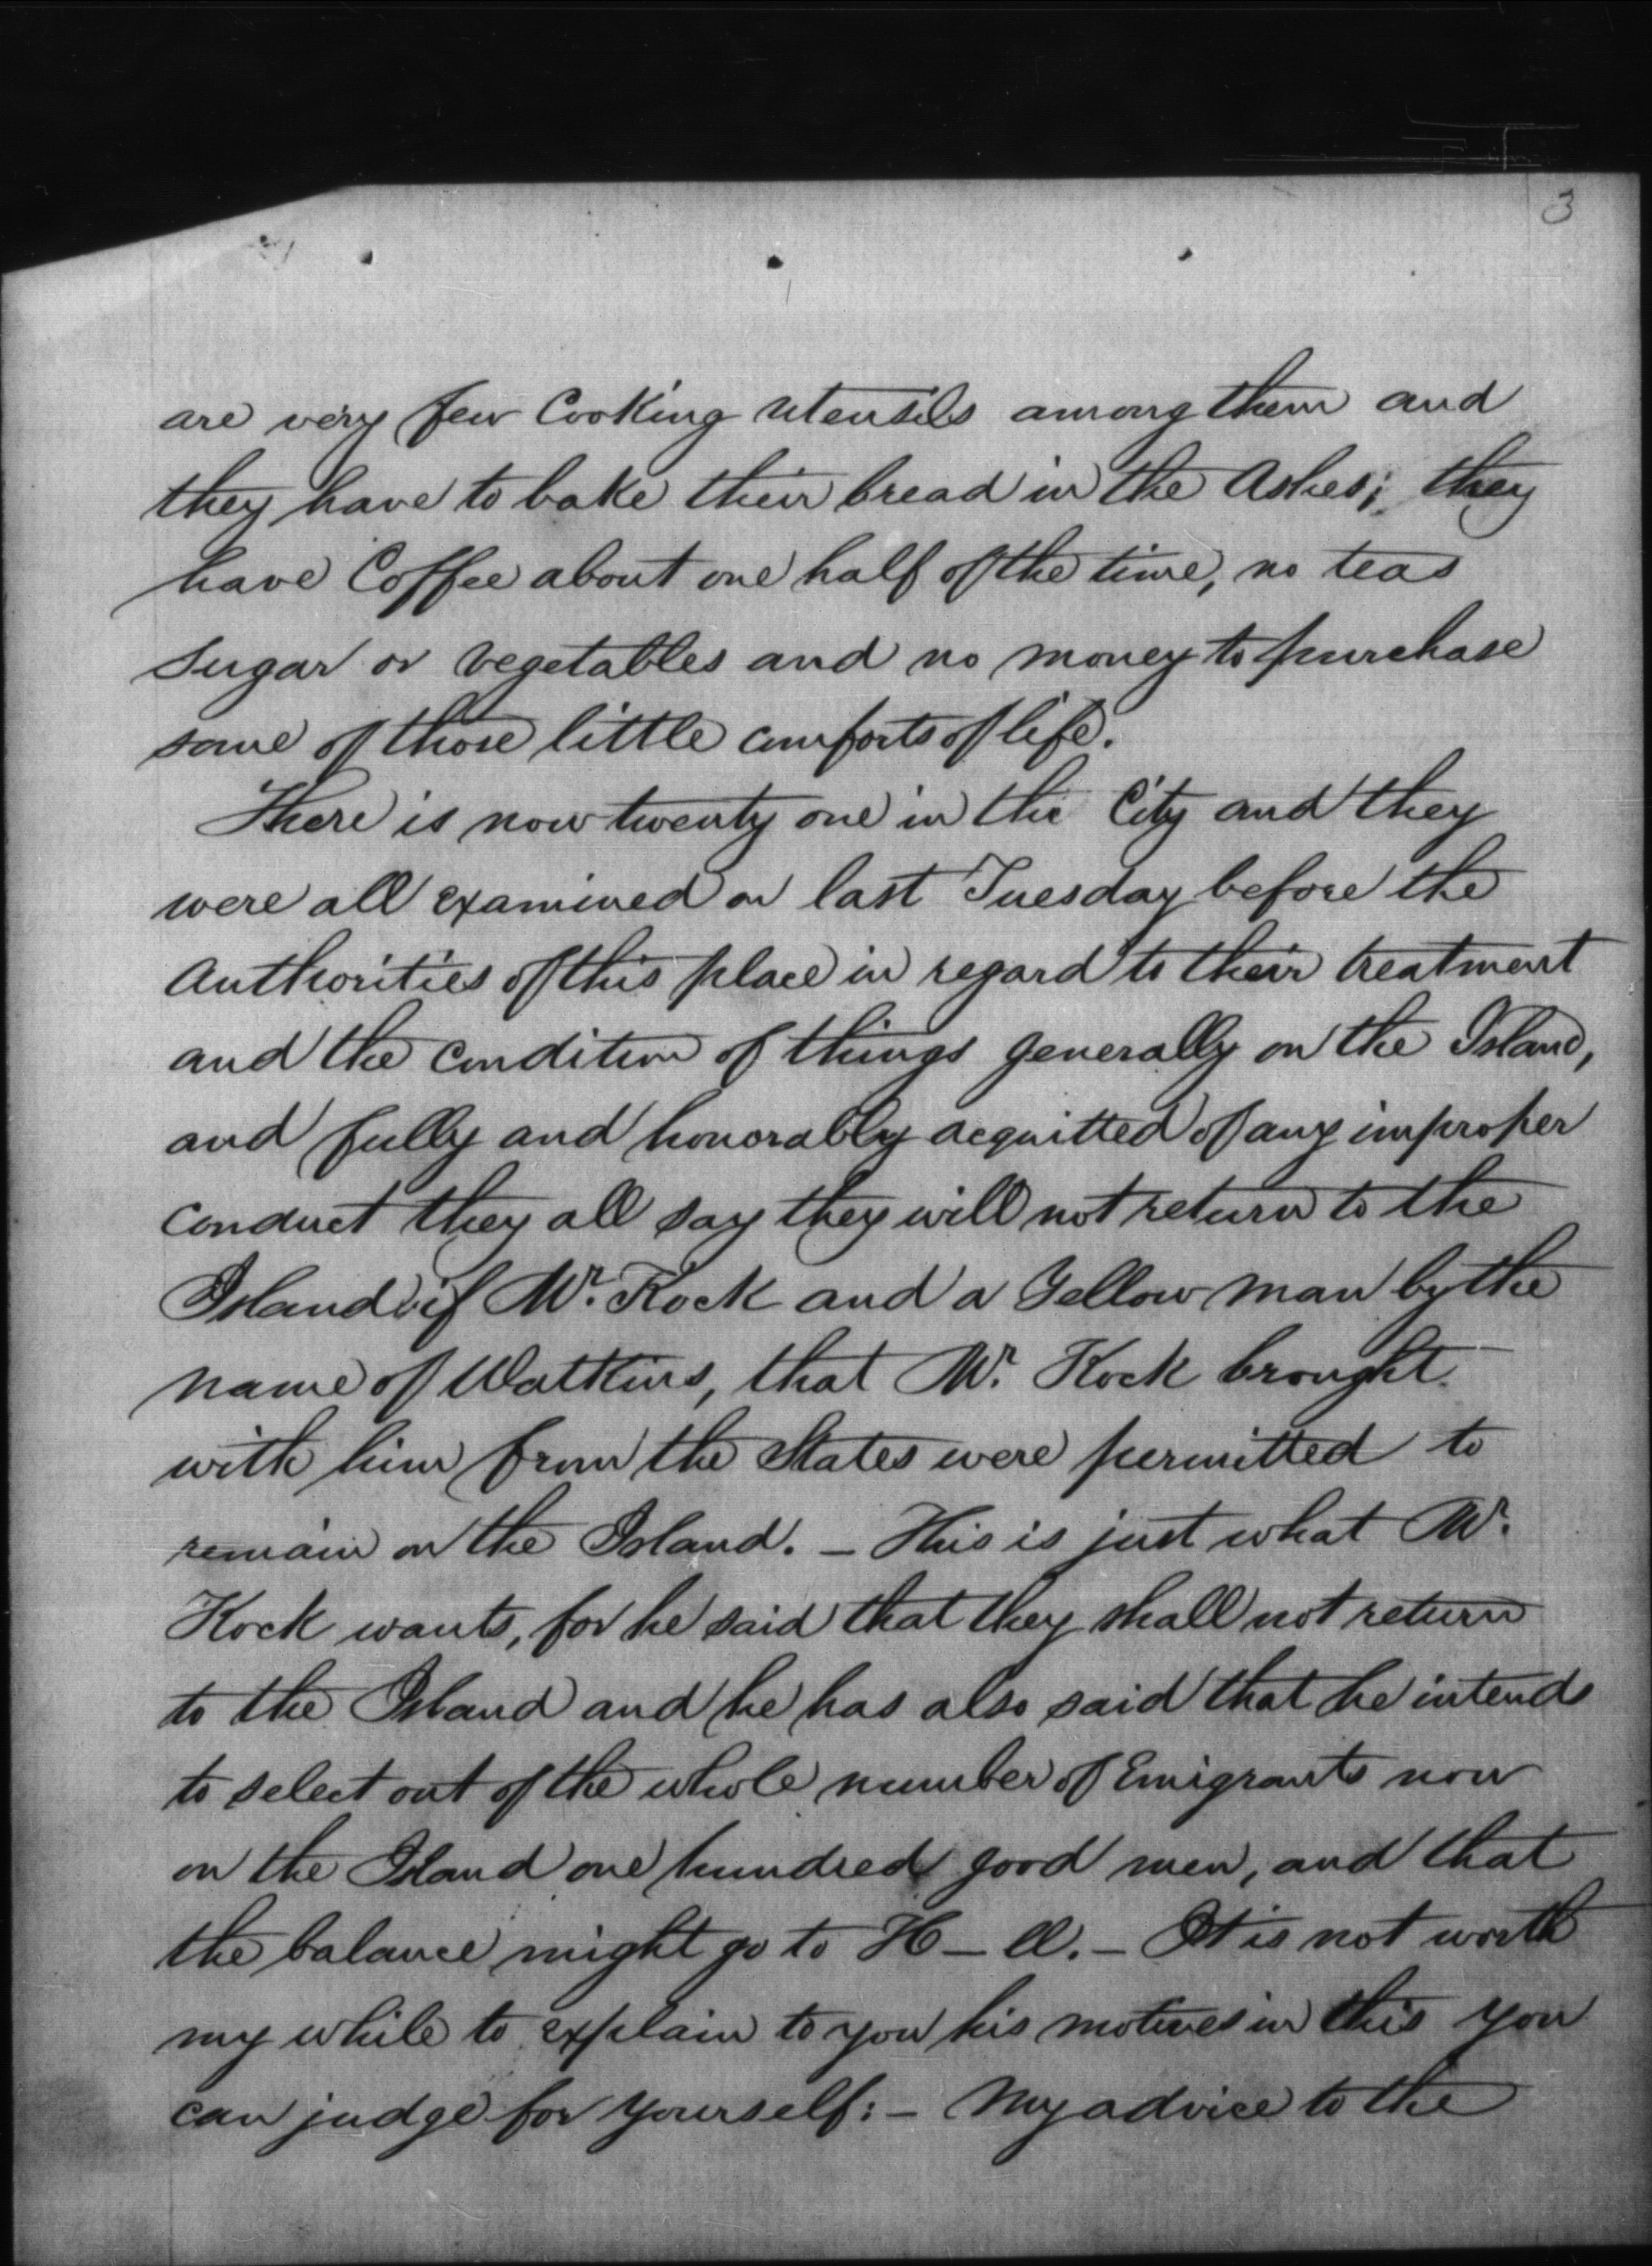 3
are very few Cooking utensils among them and
they have to bake their bread in the Ashes; they
have Coffee about one half of the time, no teas
Sugar or vegetables and no money to purchase
some of those little comforts of life.
There is now twenty one in the City and they
were all examined on last Tuesday before the
Authorities of this place in regard to their treatment
and the condition of things generally on the Island,
and fully and honorably acquitted of any improper
conduct they all say they will not return to the
Island if Mr. Kock and a Yellow man by the
name of Watkins, that Mr. Kock brought
with him from the States were permitted to
remain on the Island. — This is just what Mr.
Kock wants, for he said that they shall not return
to the Island and he has also said that he intends
to select out of the whole number of Emigrants now
on the Island one hundred good men, and that
the balance might go to H — ll. — It is not worth
my while to explain to you his motives in this you
can judge for yourself: — My advice to the